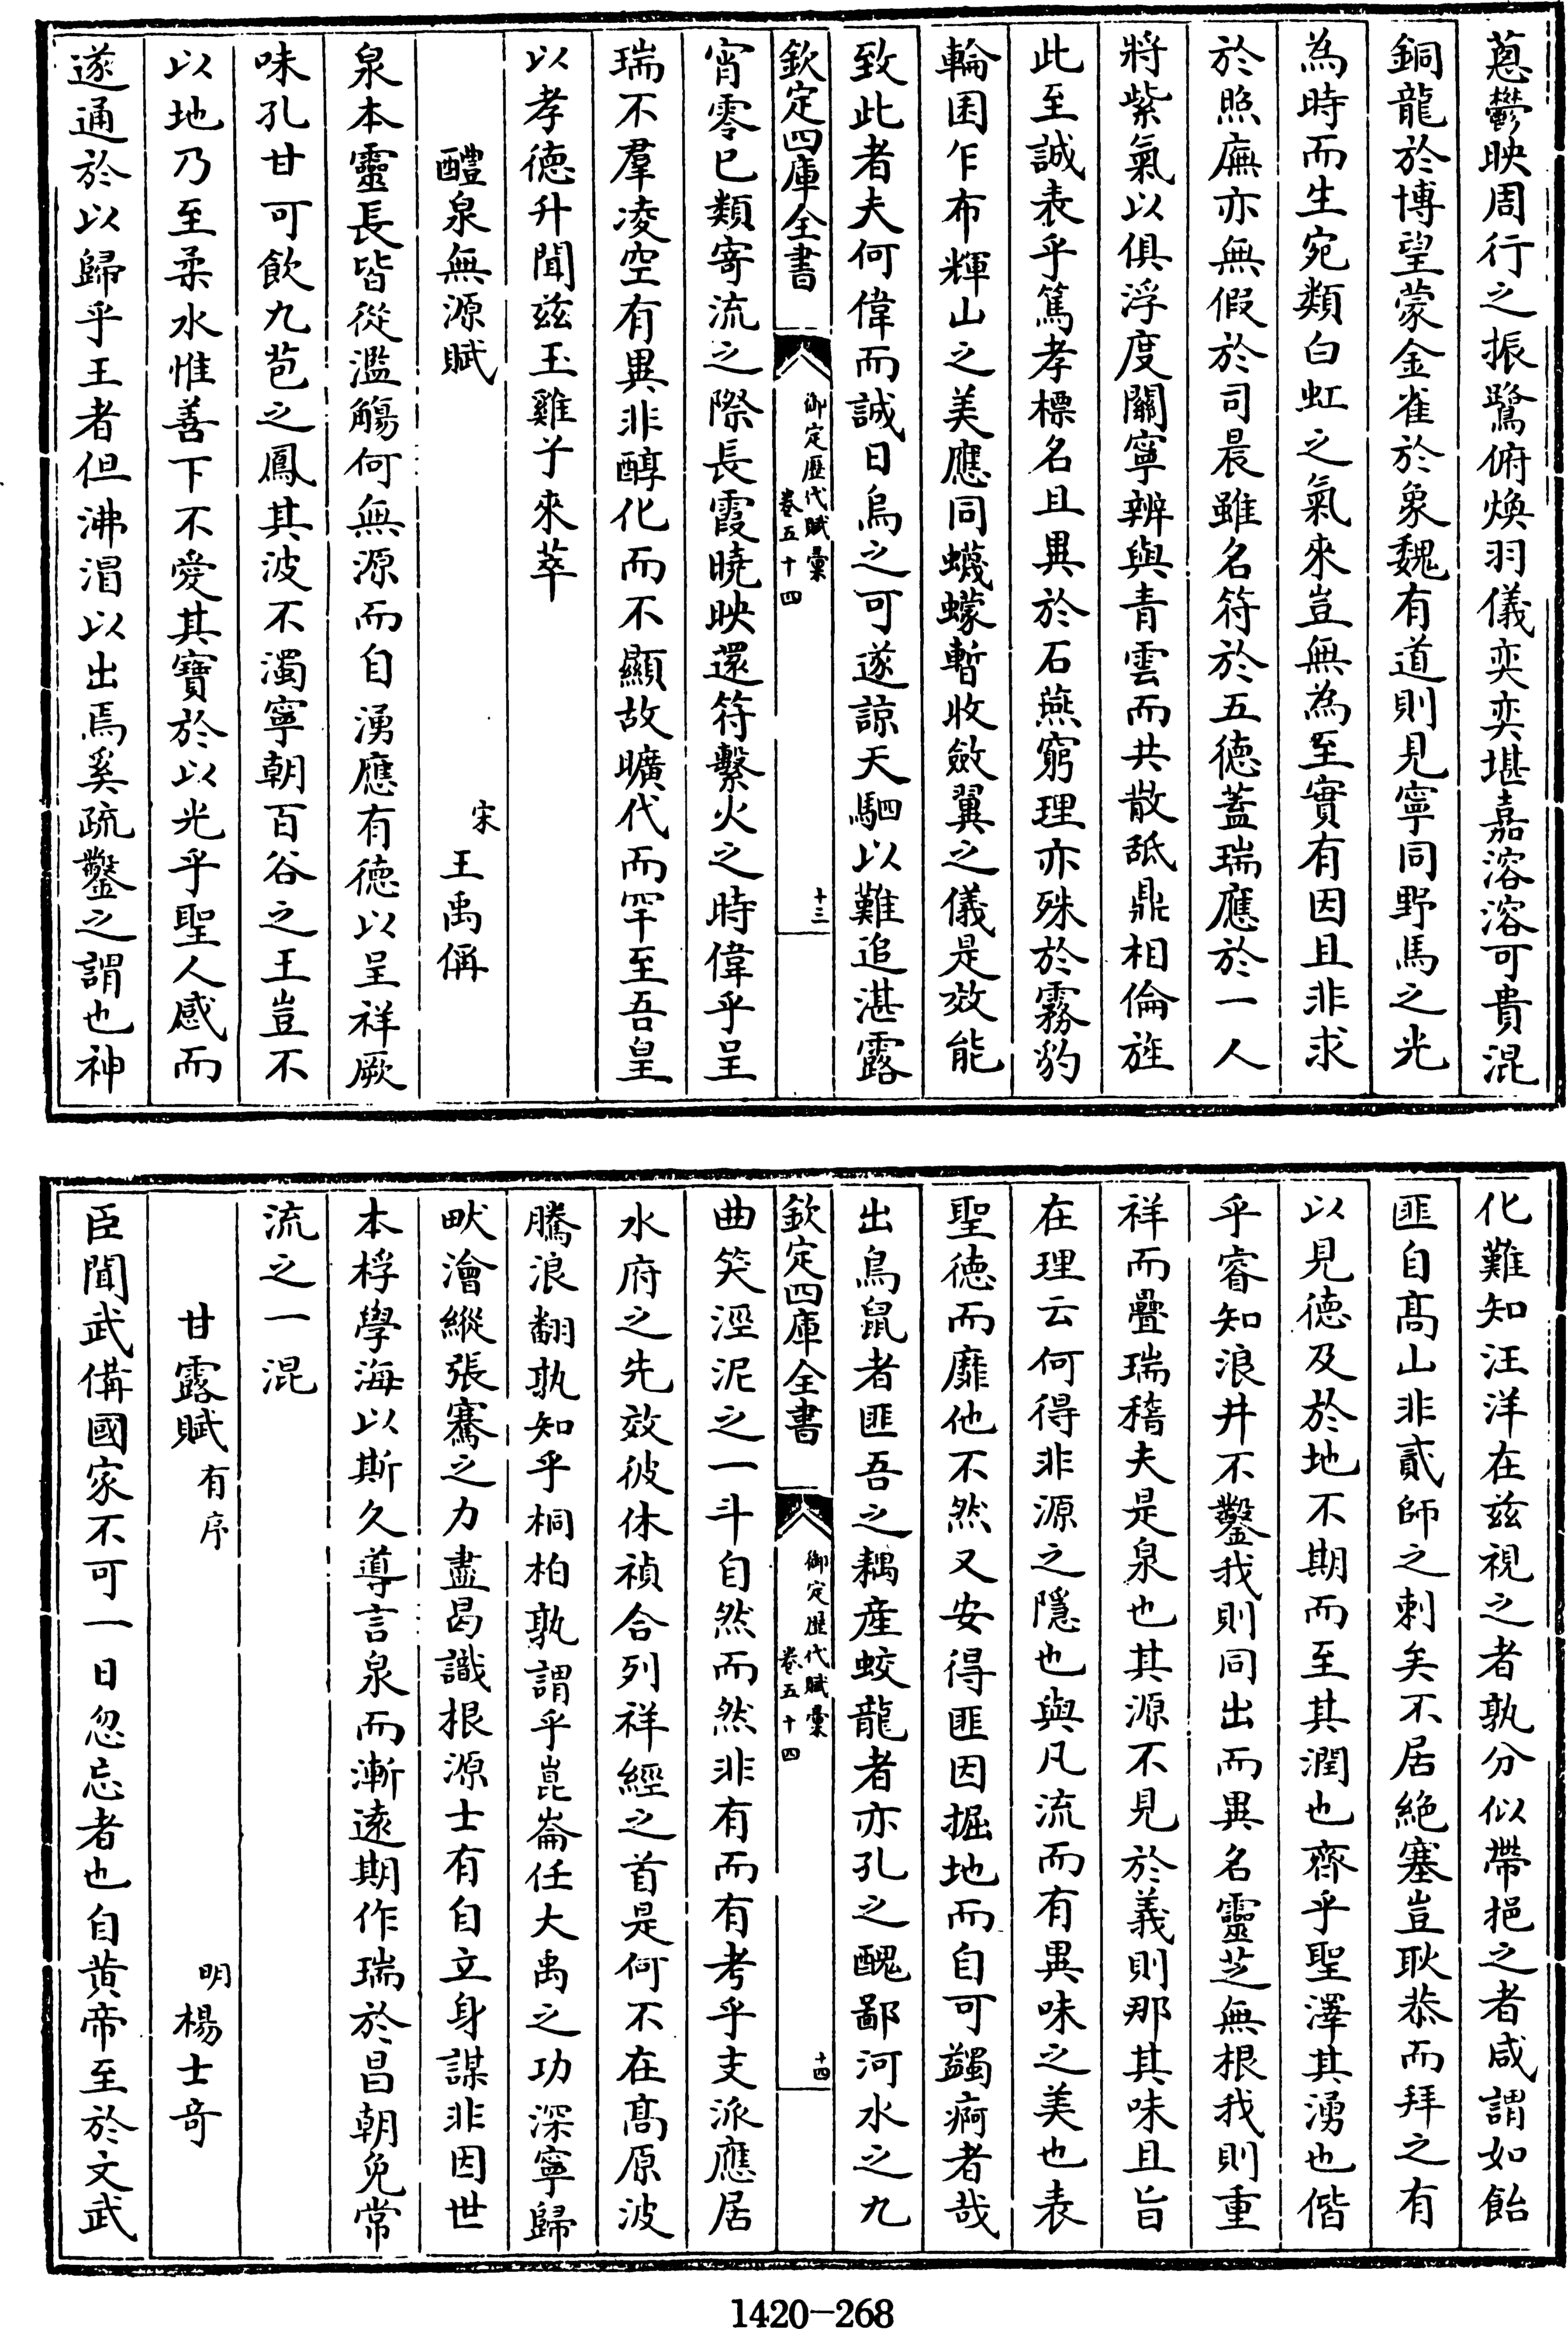 蔥鬱映周行之振鷺俯煥羽儀奕奕堪嘉溶溶可貴混
銅龍於博望蒙金雀於象魏有道則見寧同野馬之光
為時而生宛類白虹之氣來豈無為至實有因且非求
於照廡亦無假於司晨雖名符於五徳蓋瑞應於一人
將紫氣以俱浮度關寧辨與青雲而共散舐鼎相倫旌
此至誠表乎篤孝標名且異於石燕窮理亦殊於霧豹
輪囷乍布輝山之美應同蠛蠓暫收斂翼之儀是效能
致此者夫何偉而誠日烏之可遂諒天駟以難追湛露
欽定四庫全書
御定歴代賦彙
卷五十四
十三
宵零已類寄流之際長霞曉映還符繫火之時偉乎呈
瑞不羣凌空有異非醇化而不顯故曠代而罕至吾皇
以孝徳升聞兹玉雞予來萃
醴泉無源賦
宋 王禹偁
泉本靈長皆從濫觴何無源而自湧應有德以呈祥厥
味孔甘可飲九苞之鳳其波不濁寧朝百谷之王豈不
以地乃至柔水惟善下不愛其寶於以光乎聖人感而
遂通於以歸乎王者但沸涓以出焉奚疏鑿之謂也神
化難知汪洋在兹視之者孰分似帶挹之者咸謂如飴
匪自髙山非貳師之刺矣不居絶塞豈耿恭而拜之有
以見徳及於地不期而至其潤也齊乎聖澤其湧也偕
乎睿知浪井不鑿我則同出而異名靈芝無根我則重
祥而疊瑞稽夫是泉也其源不見於義則那其味且旨
在理云何得非源之隱也與凡流而有異味之美也表
聖德而靡他不然又安得匪因掘地而自可蠲痾者哉
出鳥鼠者匪吾之耦産蛟龍者亦孔之醜鄙河水之九
欽定四庫全書
御定歴代賦彙
卷五十四
十四
曲笑涇泥之一斗自然而然非有而有考乎支派應居
水府之先效彼休禎合列祥經之首是何不在髙原波
騰浪翻孰知乎桐柏孰謂乎崑崙任大禹之功深寧歸
畎澮縱張騫之力盡曷識根源士有自立身謀非因世
本桴學海以斯久導言泉而漸遠期作瑞於昌朝免常
流之一混
甘露賦有序
明 楊士奇
臣聞武備國家不可一日忽忘者也自黄帝至於文武
1420-268